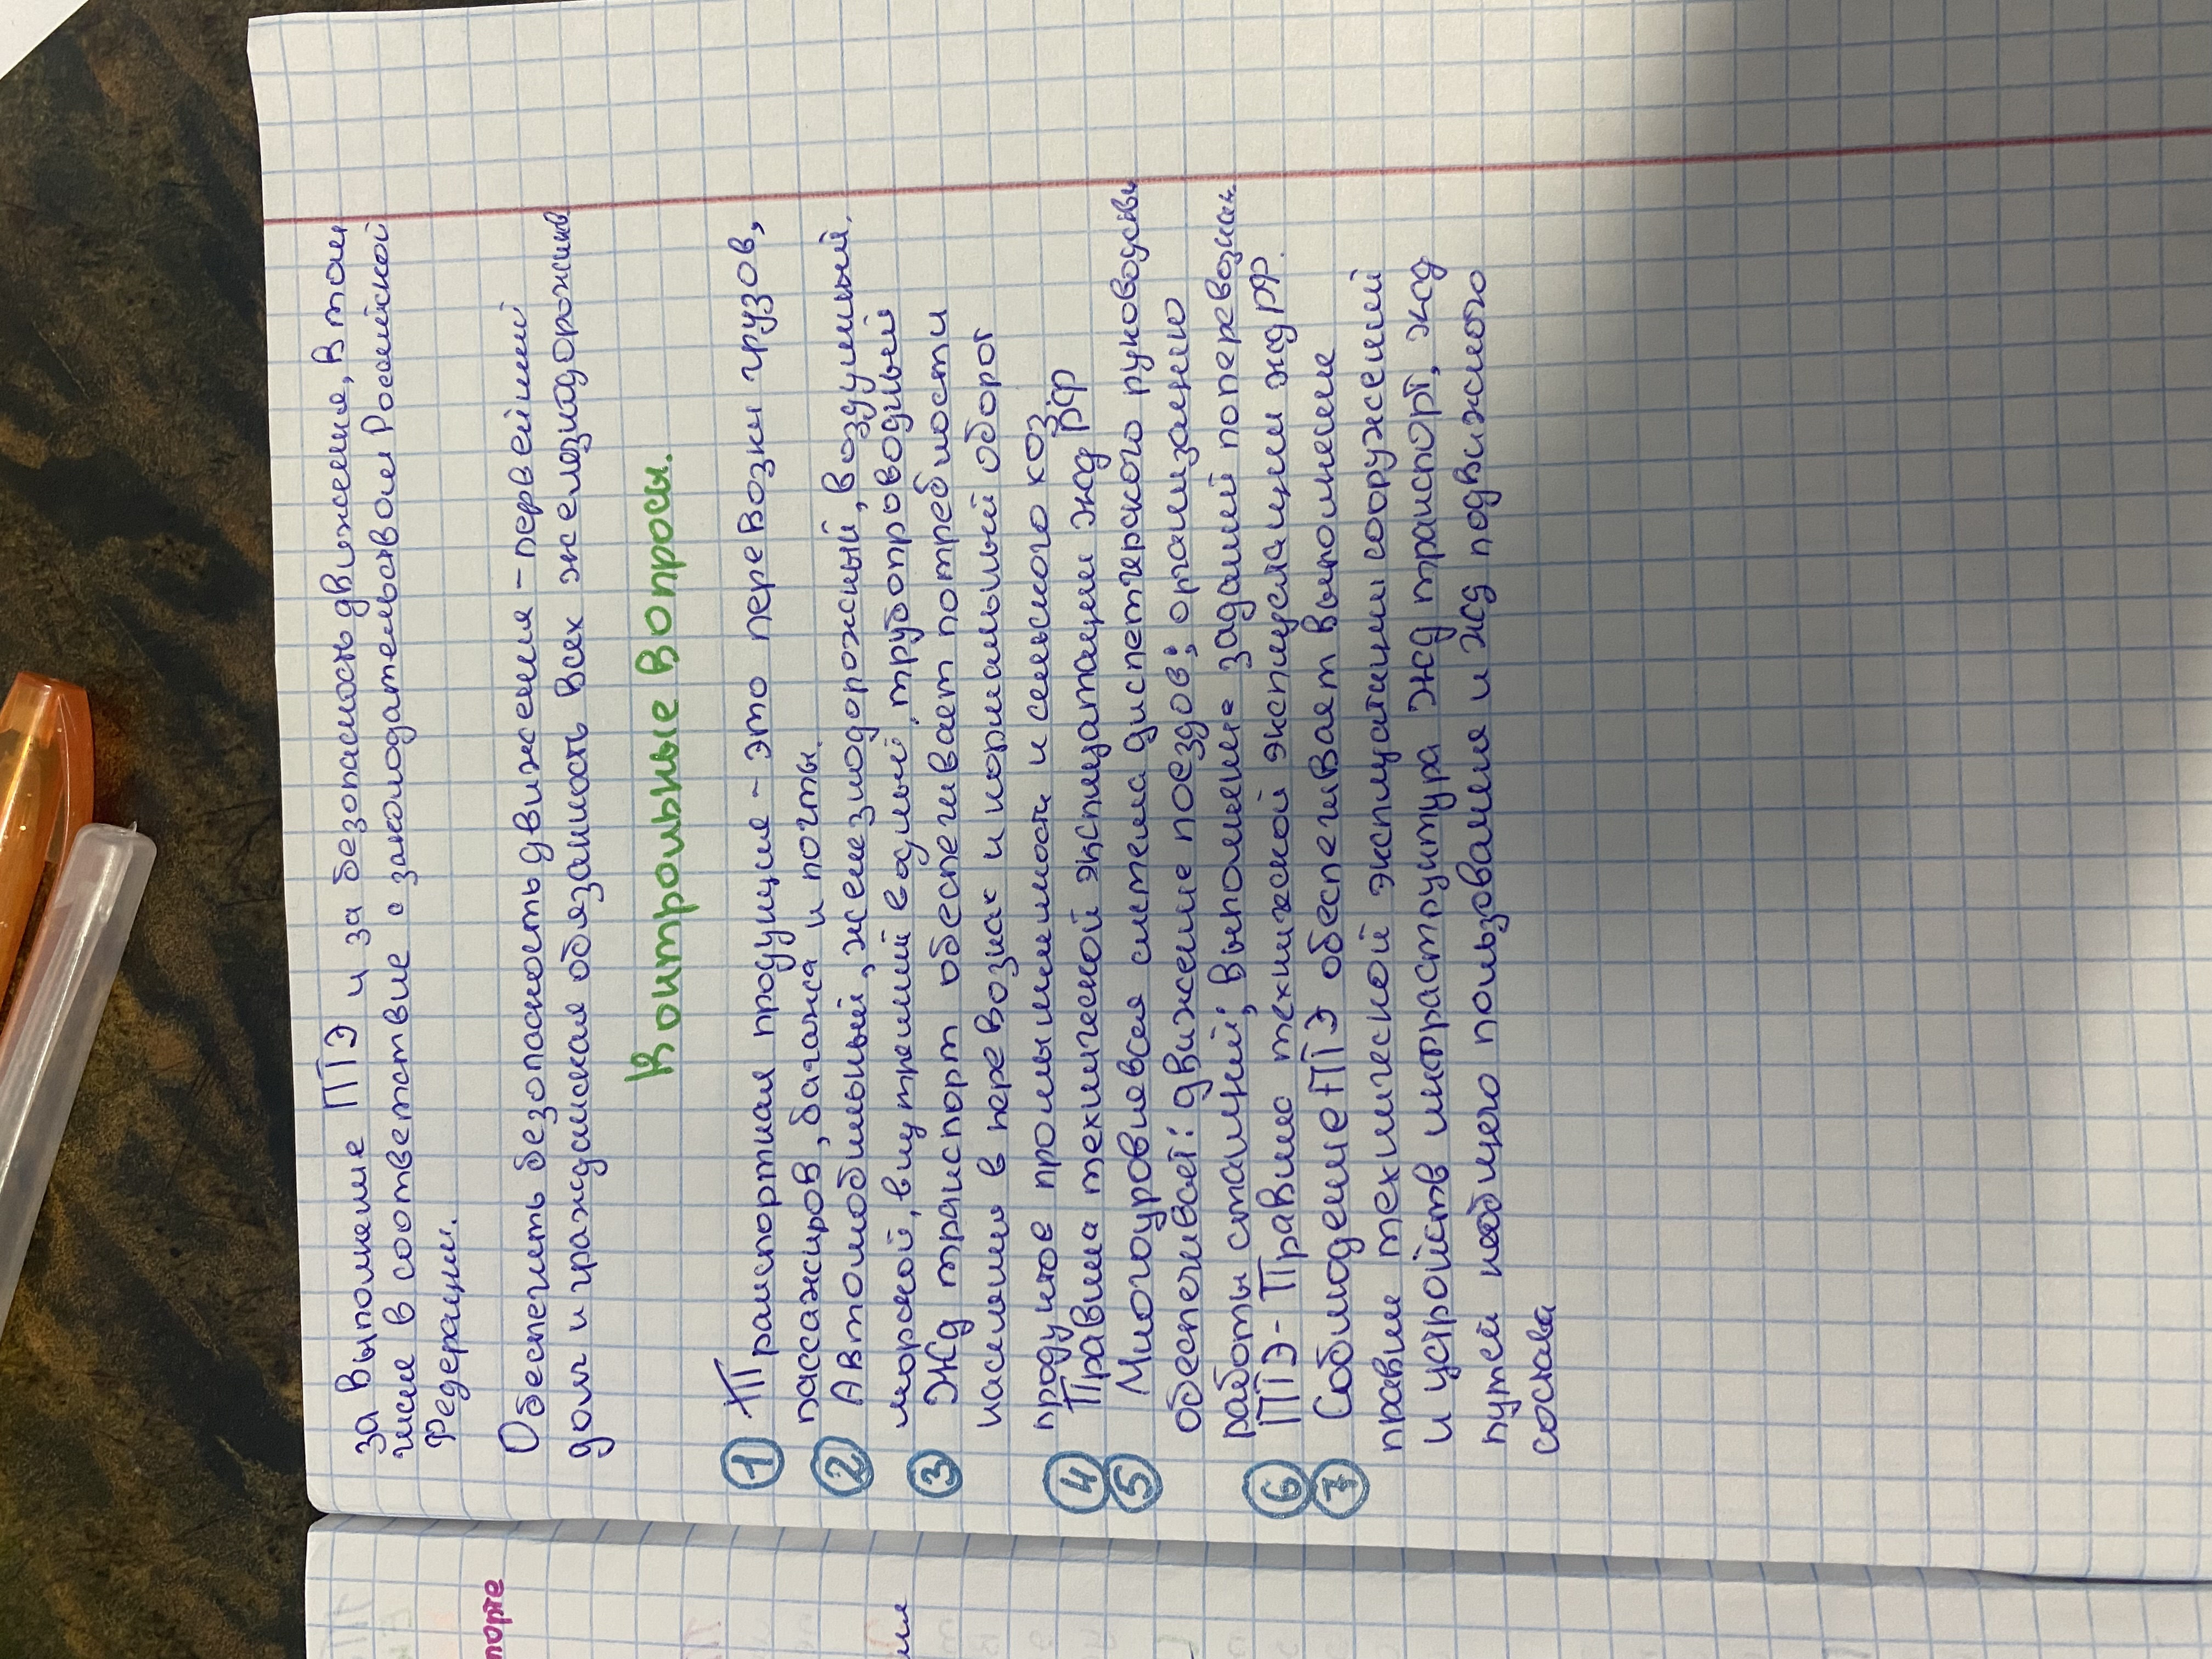 за выполнение ПТЭ и за безопасность движения, в том
числе в соответствие с законодательством Российской
Федерации.
Обеспечить безопасность движения - первейший
долг и гражданская обязанность всех железнодорожников
Контрольные вопросы.
① Транспортная продукция - это перевозки грузов,
пассажиров, багажа и почты.
② Автомобильный, железнодорожный, воздушный.
морской, внутренний водный, трубопроводный
③ Жд транспорт обеспечивает потребности
населения в перевозках и нормальный оборот
продуктов промышленности и сельского хоз.
④ Правила технической эксплуатации жд РФ
⑤ Многоуровневая система диспетчерского руководства
обеспечивает: движение поездов; организацию
работы станций; выполнение заданий по перевозкам
⑥ ПТЭ - Правила технической эксплуатации жд РФ.
⑦ Соблюдение ПТЭ обеспечивает выполнение
правил технической эксплуатации сооружений
и устройств инфраструктура жд транспорт, жд
путей необщего пользования и жд подвижного
состава
порте